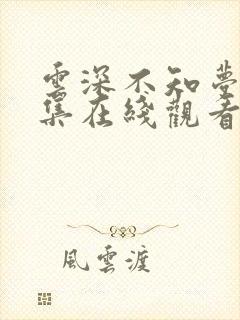 雲深不知夢
集在綫觀看
風雲渡